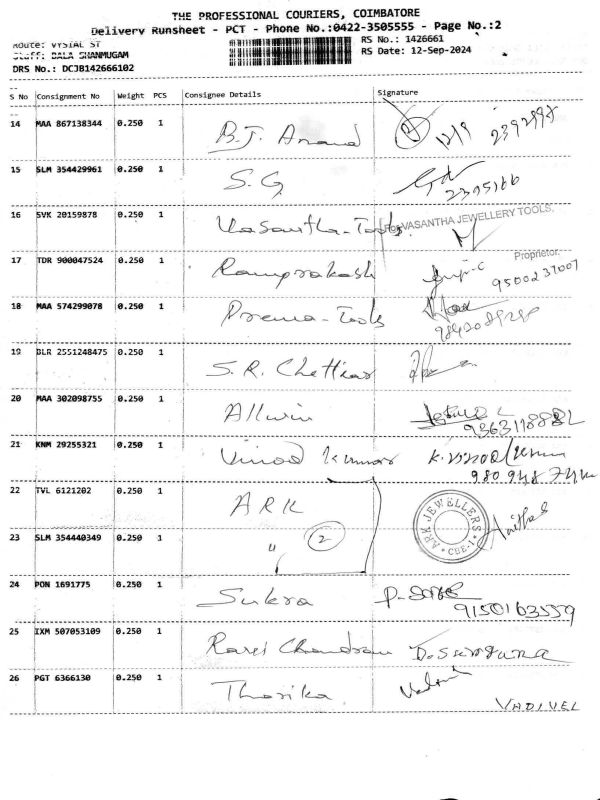 THE PROFESSIONAL COURIERS, COIMBATORE
Delivery Runsheet - PCT - Phone No.:0422-3505555 - Page No.:2
Route: VYSIAL ST RS No.: 1426661
Staff: BALA SHANMUGAM RS Date: 12-Sep-2024
DRS No.: DCJB142666102
S No Consignment No Weight PCS Consignee Details Signature
14 MAA 867138344 0.250 1 B.J. Anand 12/9 2392998
15 SLM 354429961 0.250 1 S.G
16 SVK 20159878 0.250 1 Vasantha-Tools For VASANTHA JEWELLERY TOOLS,
Proprietor.
17 TDR 900047524 0.250 1 Ramprakash 9500237007
18 MAA 574299078 0.250 1 Prema-Tools
19 BLR 2551248475 0.250 1 S.R. Chettiar
20 MAA 302098755 0.250 1 Allwin
21 KNM 29255321 0.250 1 Vinod kumar K.vinod kumar
22 TVL 6121202 0.250 1 ARK ARK JEWELLERS CBE-1
23 SLM 354440349 0.250 1 " 2
24 PON 1691775 0.250 1 Sukra 9150163559
25 IXM 507053109 0.250 1 Ravi Chandran
26 PGT 6366130 0.250 1 Tharika
VADIVEL